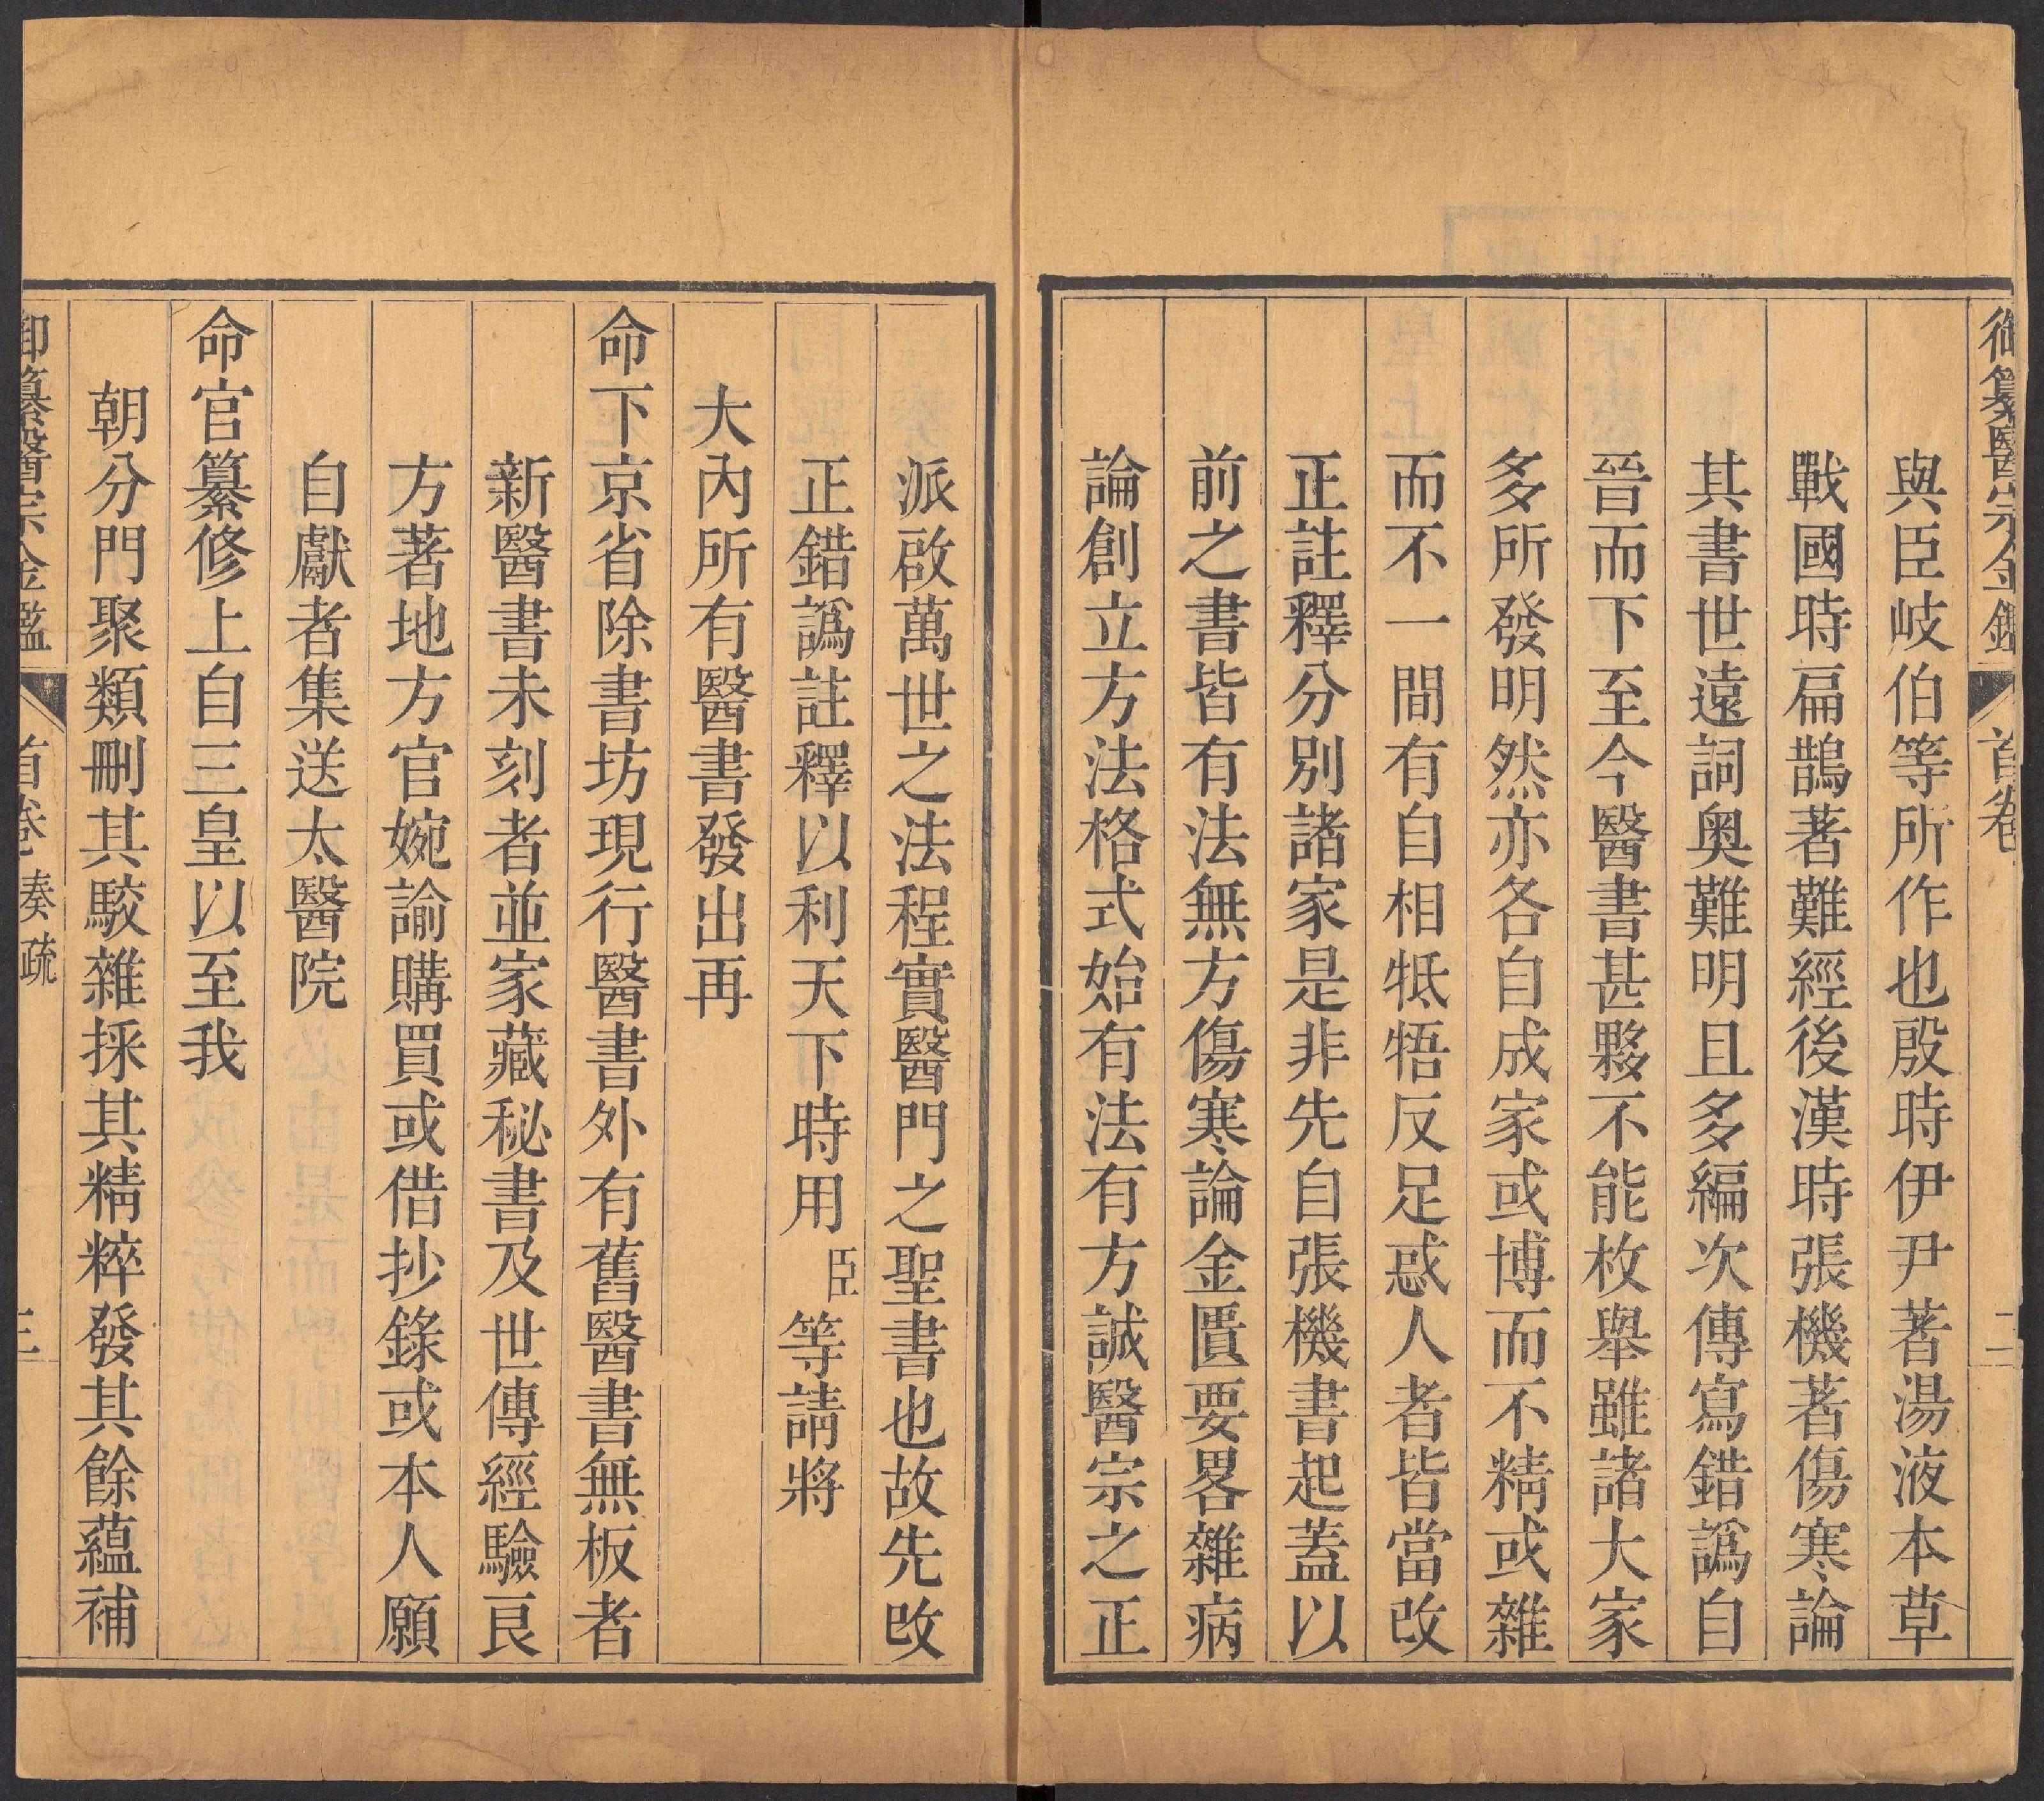 御纂醫宗金鑑 首卷 二
與臣岐伯等所作也殷時伊尹著湯液本草
戰國時扁鵲著難經後漢時張機著傷寒論
其書世遠詞奥難明且多編次傳寫錯譌自
晉而下至今醫書甚夥不能枚舉雖諸大家
多所發明然亦各自成家或博而不精或雜
而不一間有自相牴牾反足惑人者皆當改
正註釋分別諸家是非先自張機書起蓋以
前之書皆有法無方傷寒論金匱要畧雜病
論創立方法格式始有法有方誠醫宗之正
派啟萬世之法程實醫門之聖書也故先改
正錯譌註釋以利天下時用臣等請將
大內所有醫書發出再
命下京省除書坊現行醫書外有舊醫書無板者
新醫書未刻者並家藏秘書及世傳經驗良
方著地方官婉諭購買或借抄錄或本人願
自獻者集送太醫院
命官纂修上自三皇以至我
朝分門聚類刪其駁雜採其精粹發其餘蘊補
御纂醫宗金鑑 首卷 奏疏 三